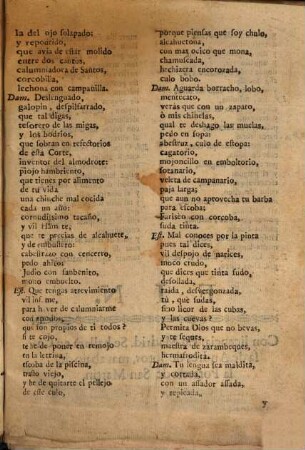 la del ojo solapado:
y repodrido,
que avis de estar molido
entre dos cantos,
calumniadora de Santos,
corcobilla,
lechona con campanilla.
Dam. Deslenguado,
galopin, despilfarrado,
que tal digas,
tesorero de las migas,
y los bodrios,
que sobran en refectorios
de esta Corte,
inventor del almodrote:
piojo hambriento,
que tienes por alimento
de tu vida
una chinche mal cocida
cada un año:
cornudisimo tacaño,
y vil
que te precias de alcahuete,
y de embustero:
cabestrazo con cencerro,
pelo
Judio con sanbenito,
mono embuelto.
Est. Que tengas atrevimiento
vil infame,
para haver de calumniarme
con apodos,
que son propios de ti todos?
si te cojo,
te he de poner en remojo
en la letrina,
escoba de la piscina,
trasto viejo,
y he de quitarte el pellejo
de este culo,
porque piensas que soy chulo,
alcahuetona,
con mas ocico que mona,
chamuscada,
hechizera encorozada,
culo bobo.
Dam. Aguarda borracho, lobo,
mentecato,
verás que con un zapato,
ò mis chinelas,
qual te deshago las muelas,
pedo en sopa:
abestruz, culo de estopa:
cagatorio,
mojoncillo en emboltorio,
sotanario,
veleta de campanario,
paja larga:
que aun no aprovecha tu barba
para escoba:
Fariseo con corcoba,
suda tinta.
Est. Mal conoces por la pinta
pues tal dices,
vil despojo de narices,
muco crudo,
que dices que tinta sudo,
desollada,
raida, desvergonzada,
tú, que sudas,
sino licor de las cubas,
y las cuevas?
Permita Dios que no bevas,
y te seques,
maestra de zarambeques,
hermafrodita.
Dam. Tu lengua sea maldita,
y cortada,
con un assador assada,
y repicada,
y